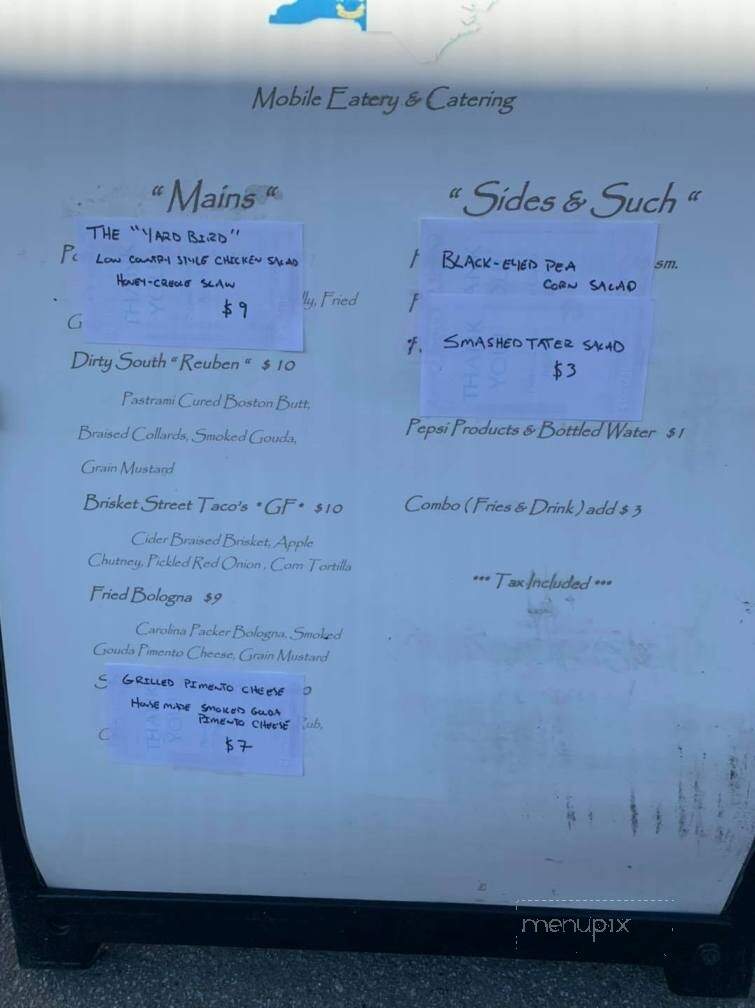 Mobile Eatery & Catering
“ Mains “
THE "YARD BIRD"
LOW COUNTRY STYLE CHICKEN SALAD
HONEY-CREOLE SLAW
$9
lly, Fried
G
Dirty South “ Reuben “ $ 10
Pastrami Cured Boston Butt,
Braised Collards, Smoked Gouda,
Grain Mustard
Brisket Street Taco's *GF* $10
Cider Braised Brisket, Apple
Chutney, Pickled Red Onion , Corn Tortilla
Fried Bologna $9
Carolina Packer Bologna, Smoked
Gouda Pimento Cheese, Grain Mustard
S
GRILLED PIMENTO CHEESE
HOUSE MADE SMOKED GOUDA
PIMENTO CHEESE
$7
“ Sides & Such “
BLACK-EYED PEA
CORN SALAD
sm.
SMASHED TATER SALAD
$3
Pepsi Products & Bottled Water $1
Combo ( Fries & Drink ) add $ 3
*** Tax Included ***
menupix